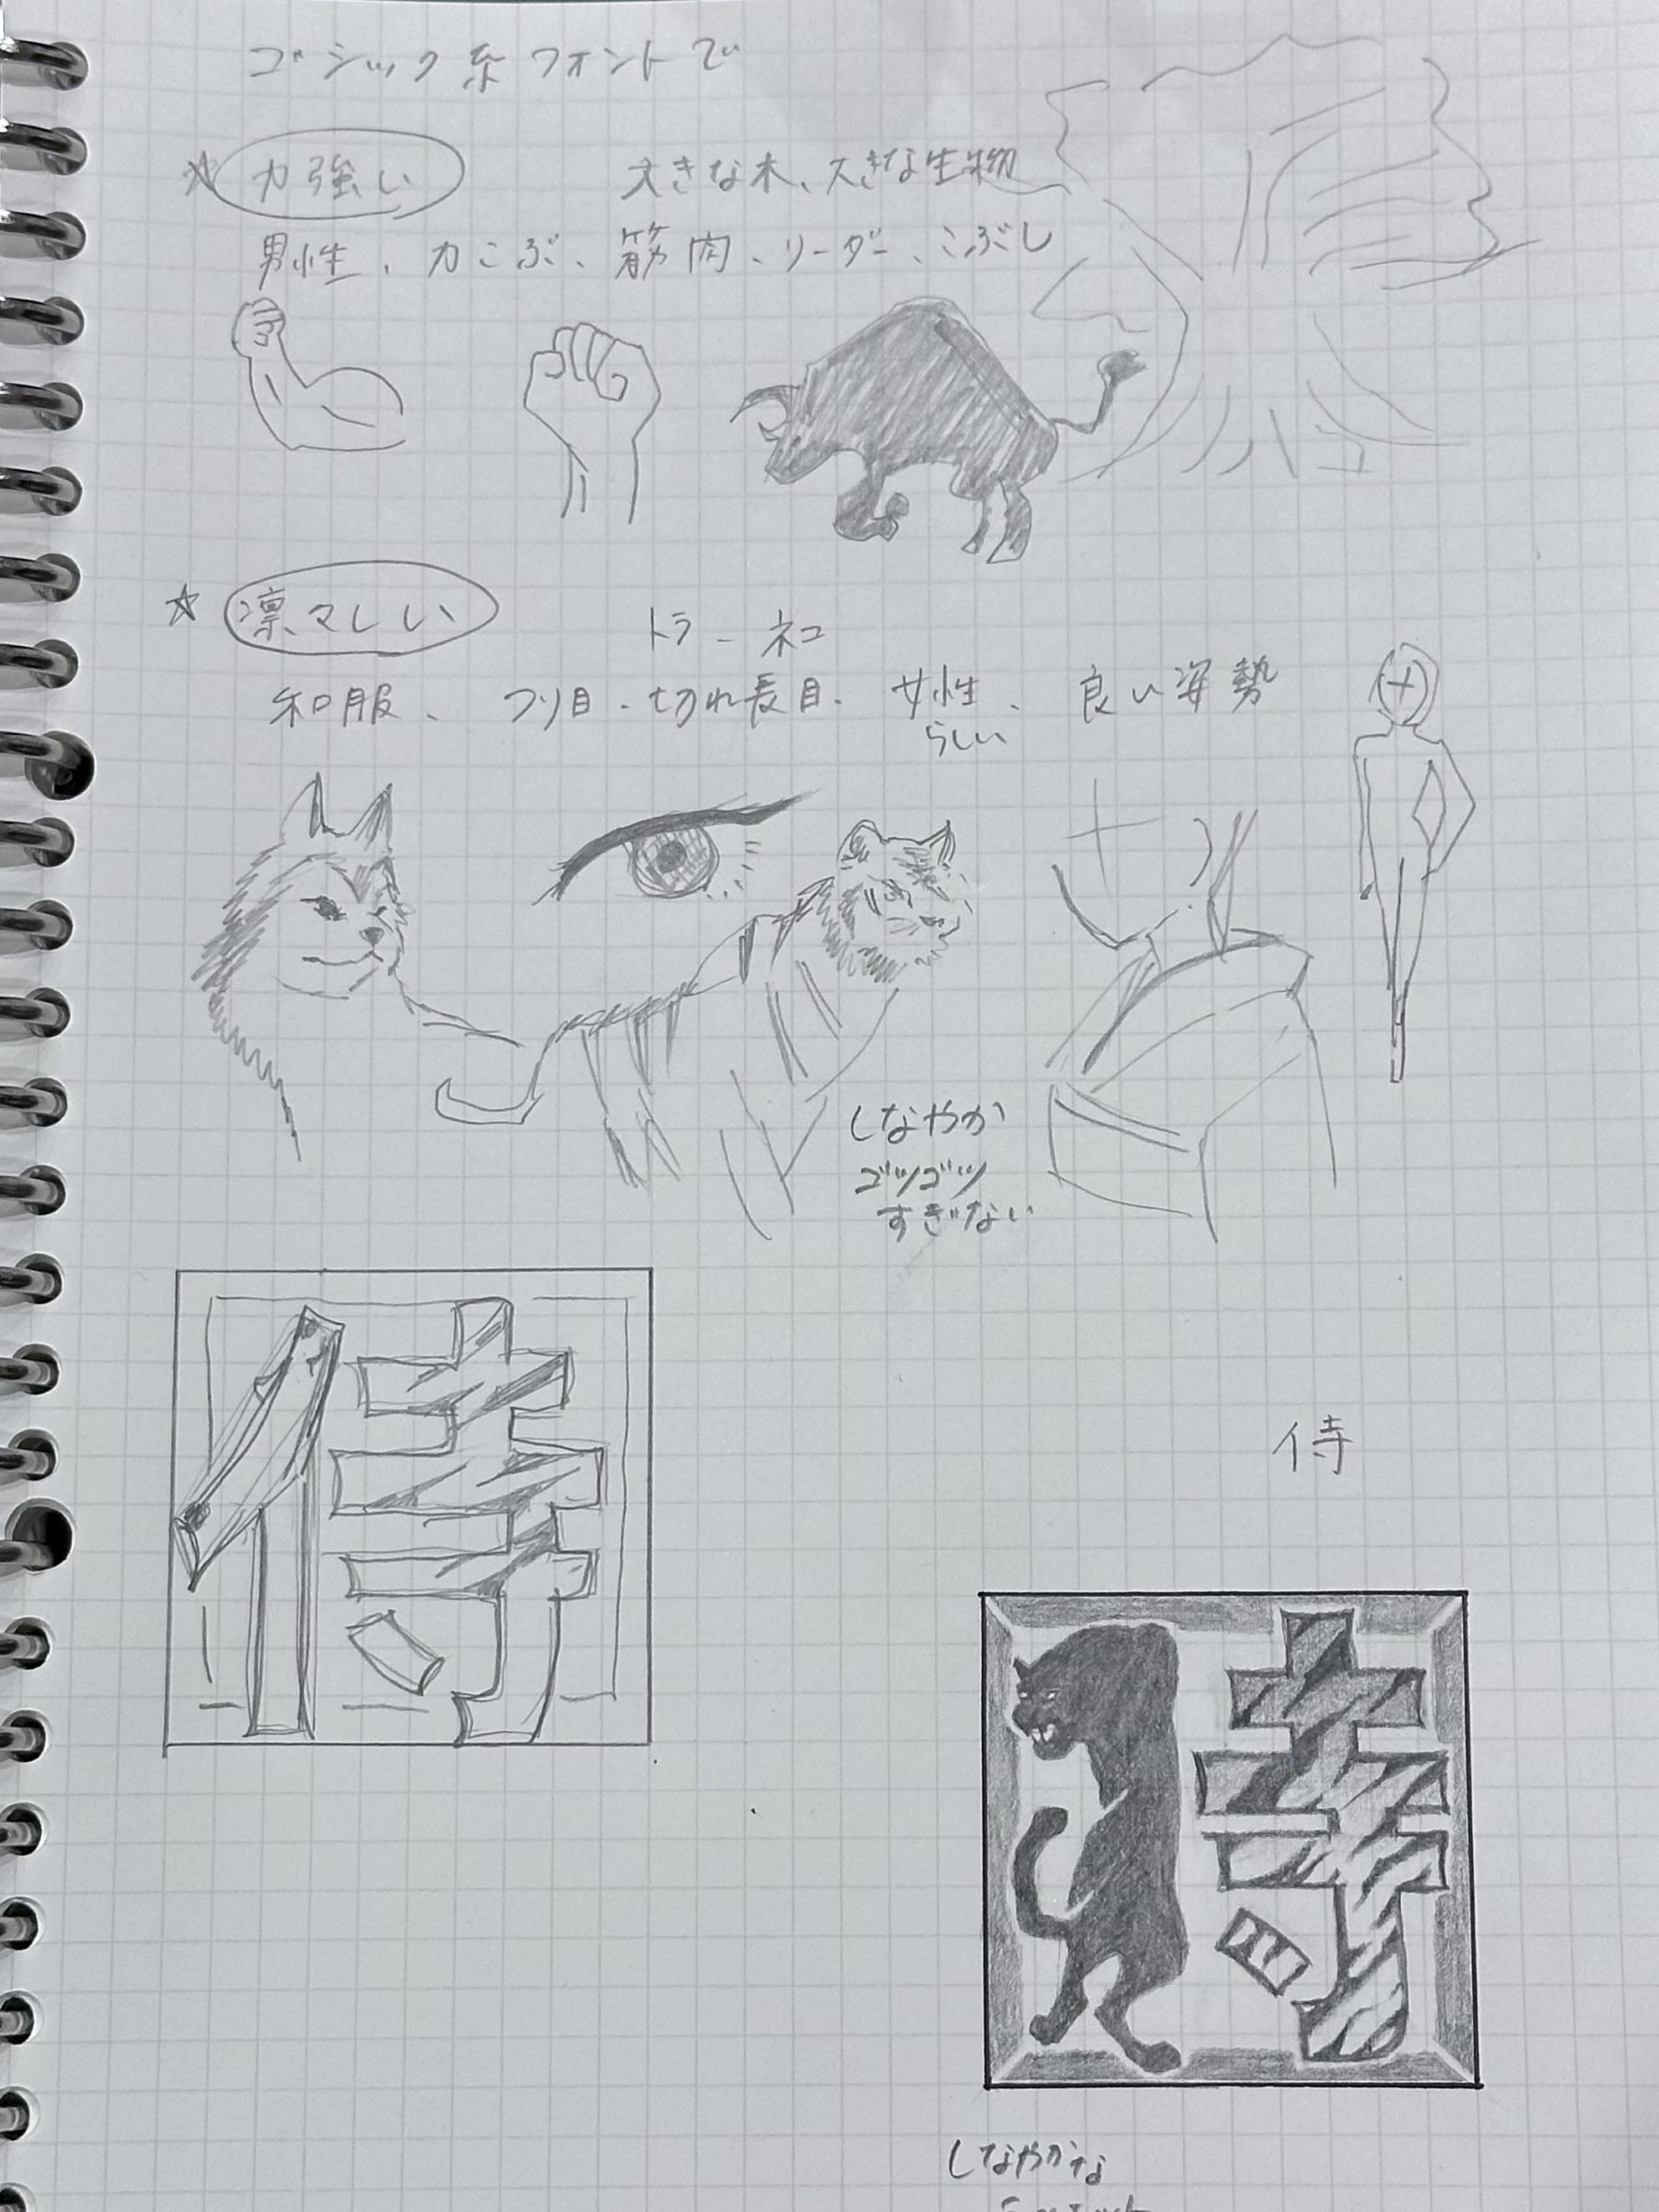 ゴシック系フォントで
☆ 力強い
大きな木、大きな生物
男性、力こぶ、筋肉、リーダー、こぶし
☆ 凛々しい
トラ - ネコ
和服、つり目、切れ長目、女性らしい、良い姿勢
しなやか
ゴツゴツ
すぎない
侍
侍
侍
しなやかな